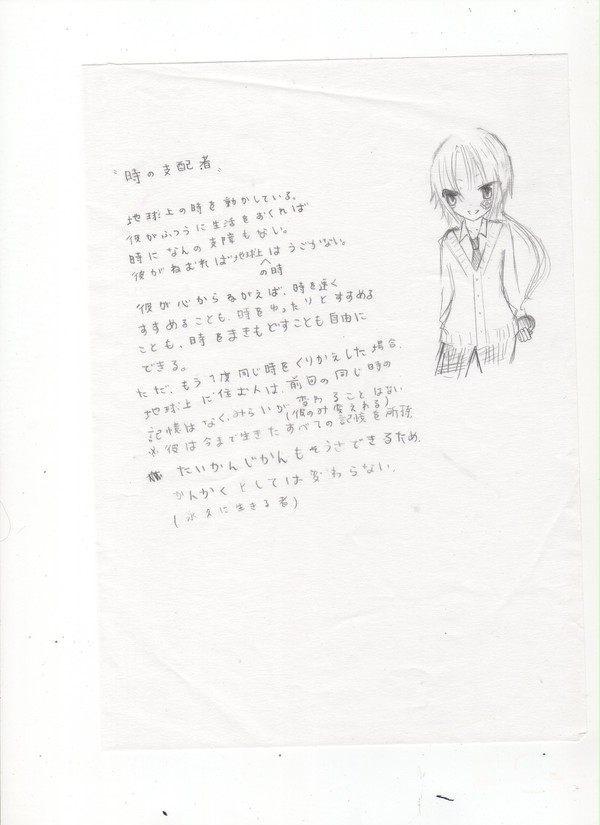 "時の支配者"
地球上の時を動かしている。
彼がふつうに生活をおくれば
時になんの支障もない。
彼がねむれば地球上の時はうごかない。
彼が心からねがえば、時を速く
すすめることも、時をゆったりとすすめる
ことも、時をまきもどすことも自由に
できる。
ただ、もう1度同じ時をくりかえした場合、
地球上に住む人は、前回の同じ時の
記憶はなく、みらいが変わることはない
(彼のみ変えれる)
※彼は今まで生きたすべての記憶を所持
たいかんじかんもそうさできるため、
かんかくとしては変わらない。
(永久に生きる者)